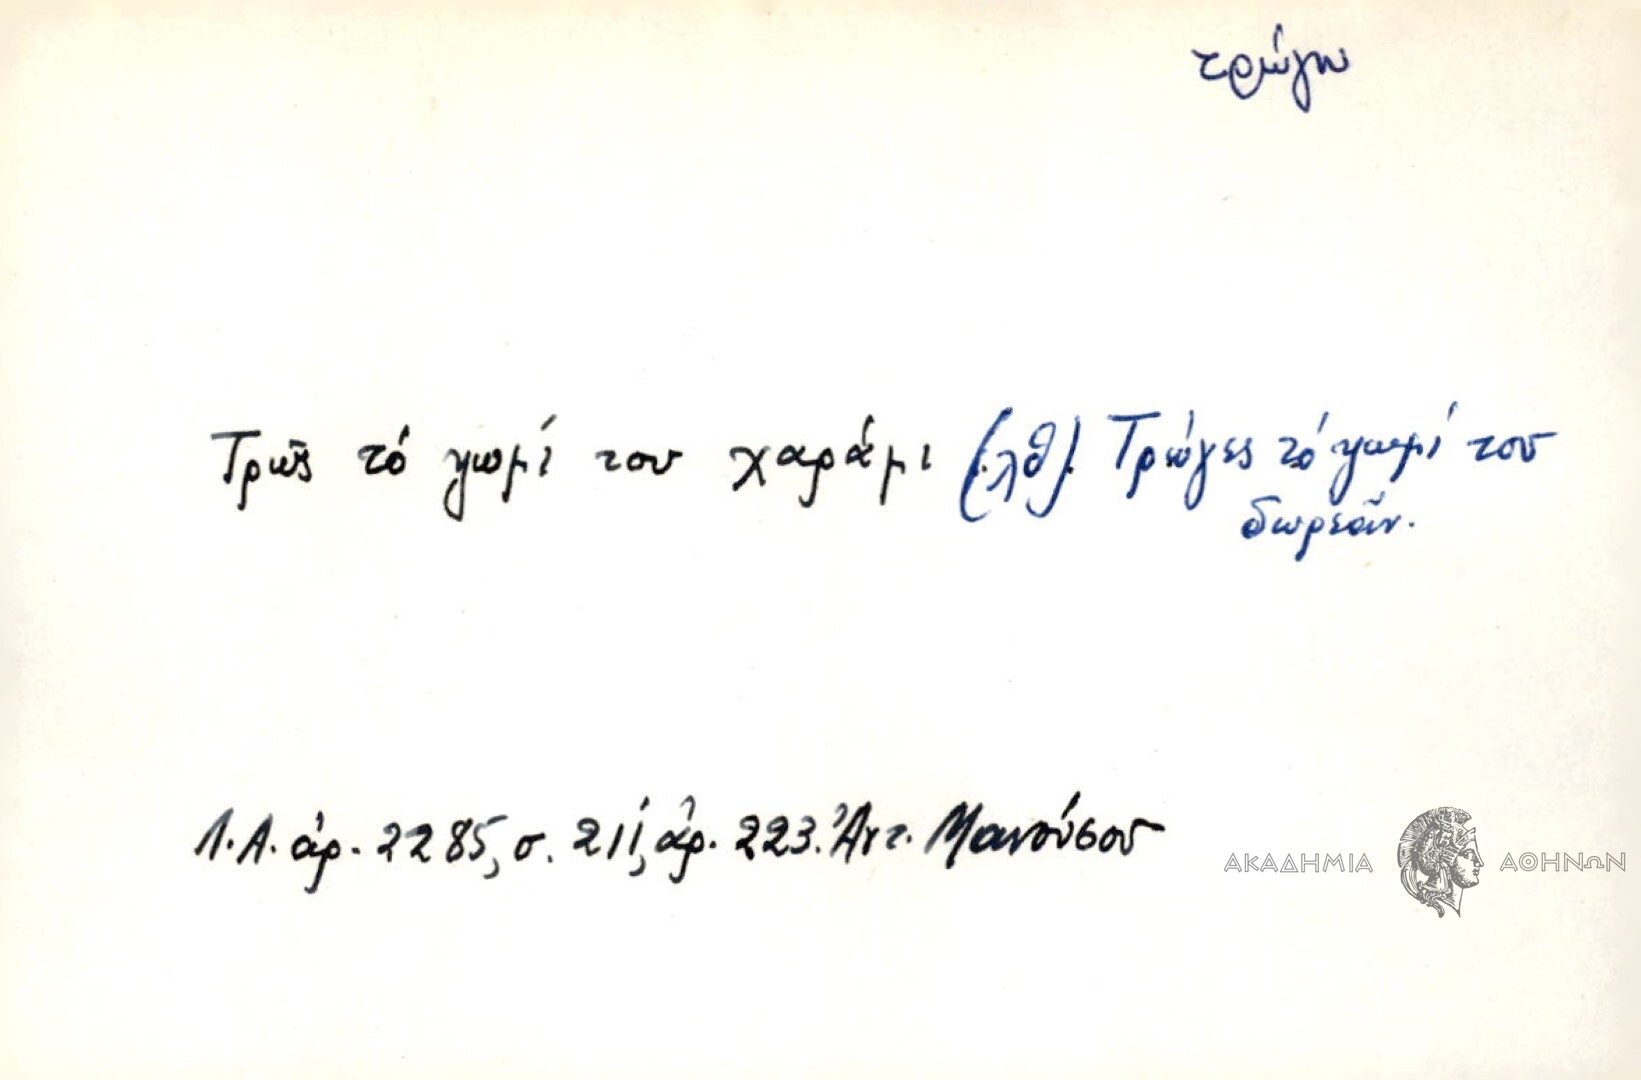 τρώγω
Τρῶς τό ψωμί του χαράμι (.λθ). Τρώγες τό ψωμί του
δωρεάν.
Λ.Α. ἀρ. 2285, σ. 211, ἀρ. 223. Ἀντ. Μανούσου
ΑΚΑΔΗΜΙΑ ΑΘΗΝΩΝ